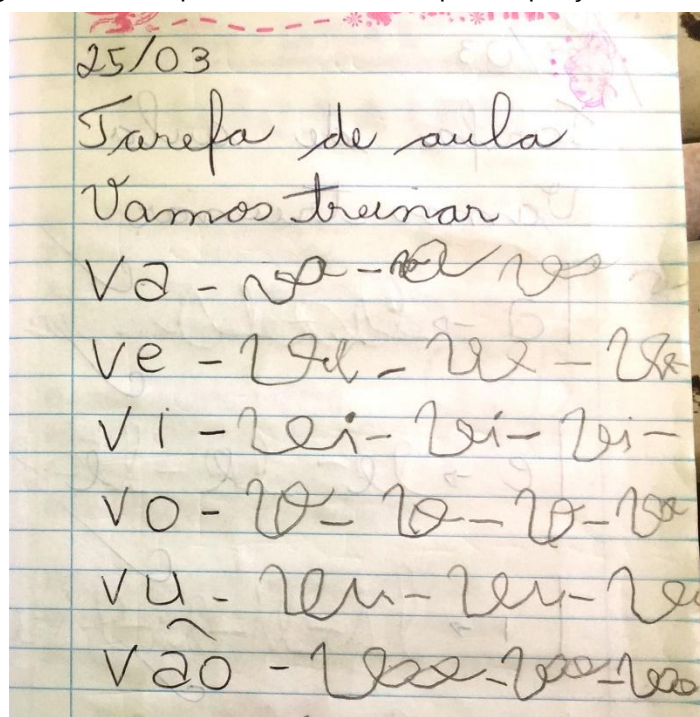 25/03
Tarefa de aula
Vamos treinar
va - va - va va
ve - ve - ve - ve
vi - vi - vi - vi -
vo - vo - vo - vo - vo
vu - vu - vu - vu
vão - vão - vão - vão